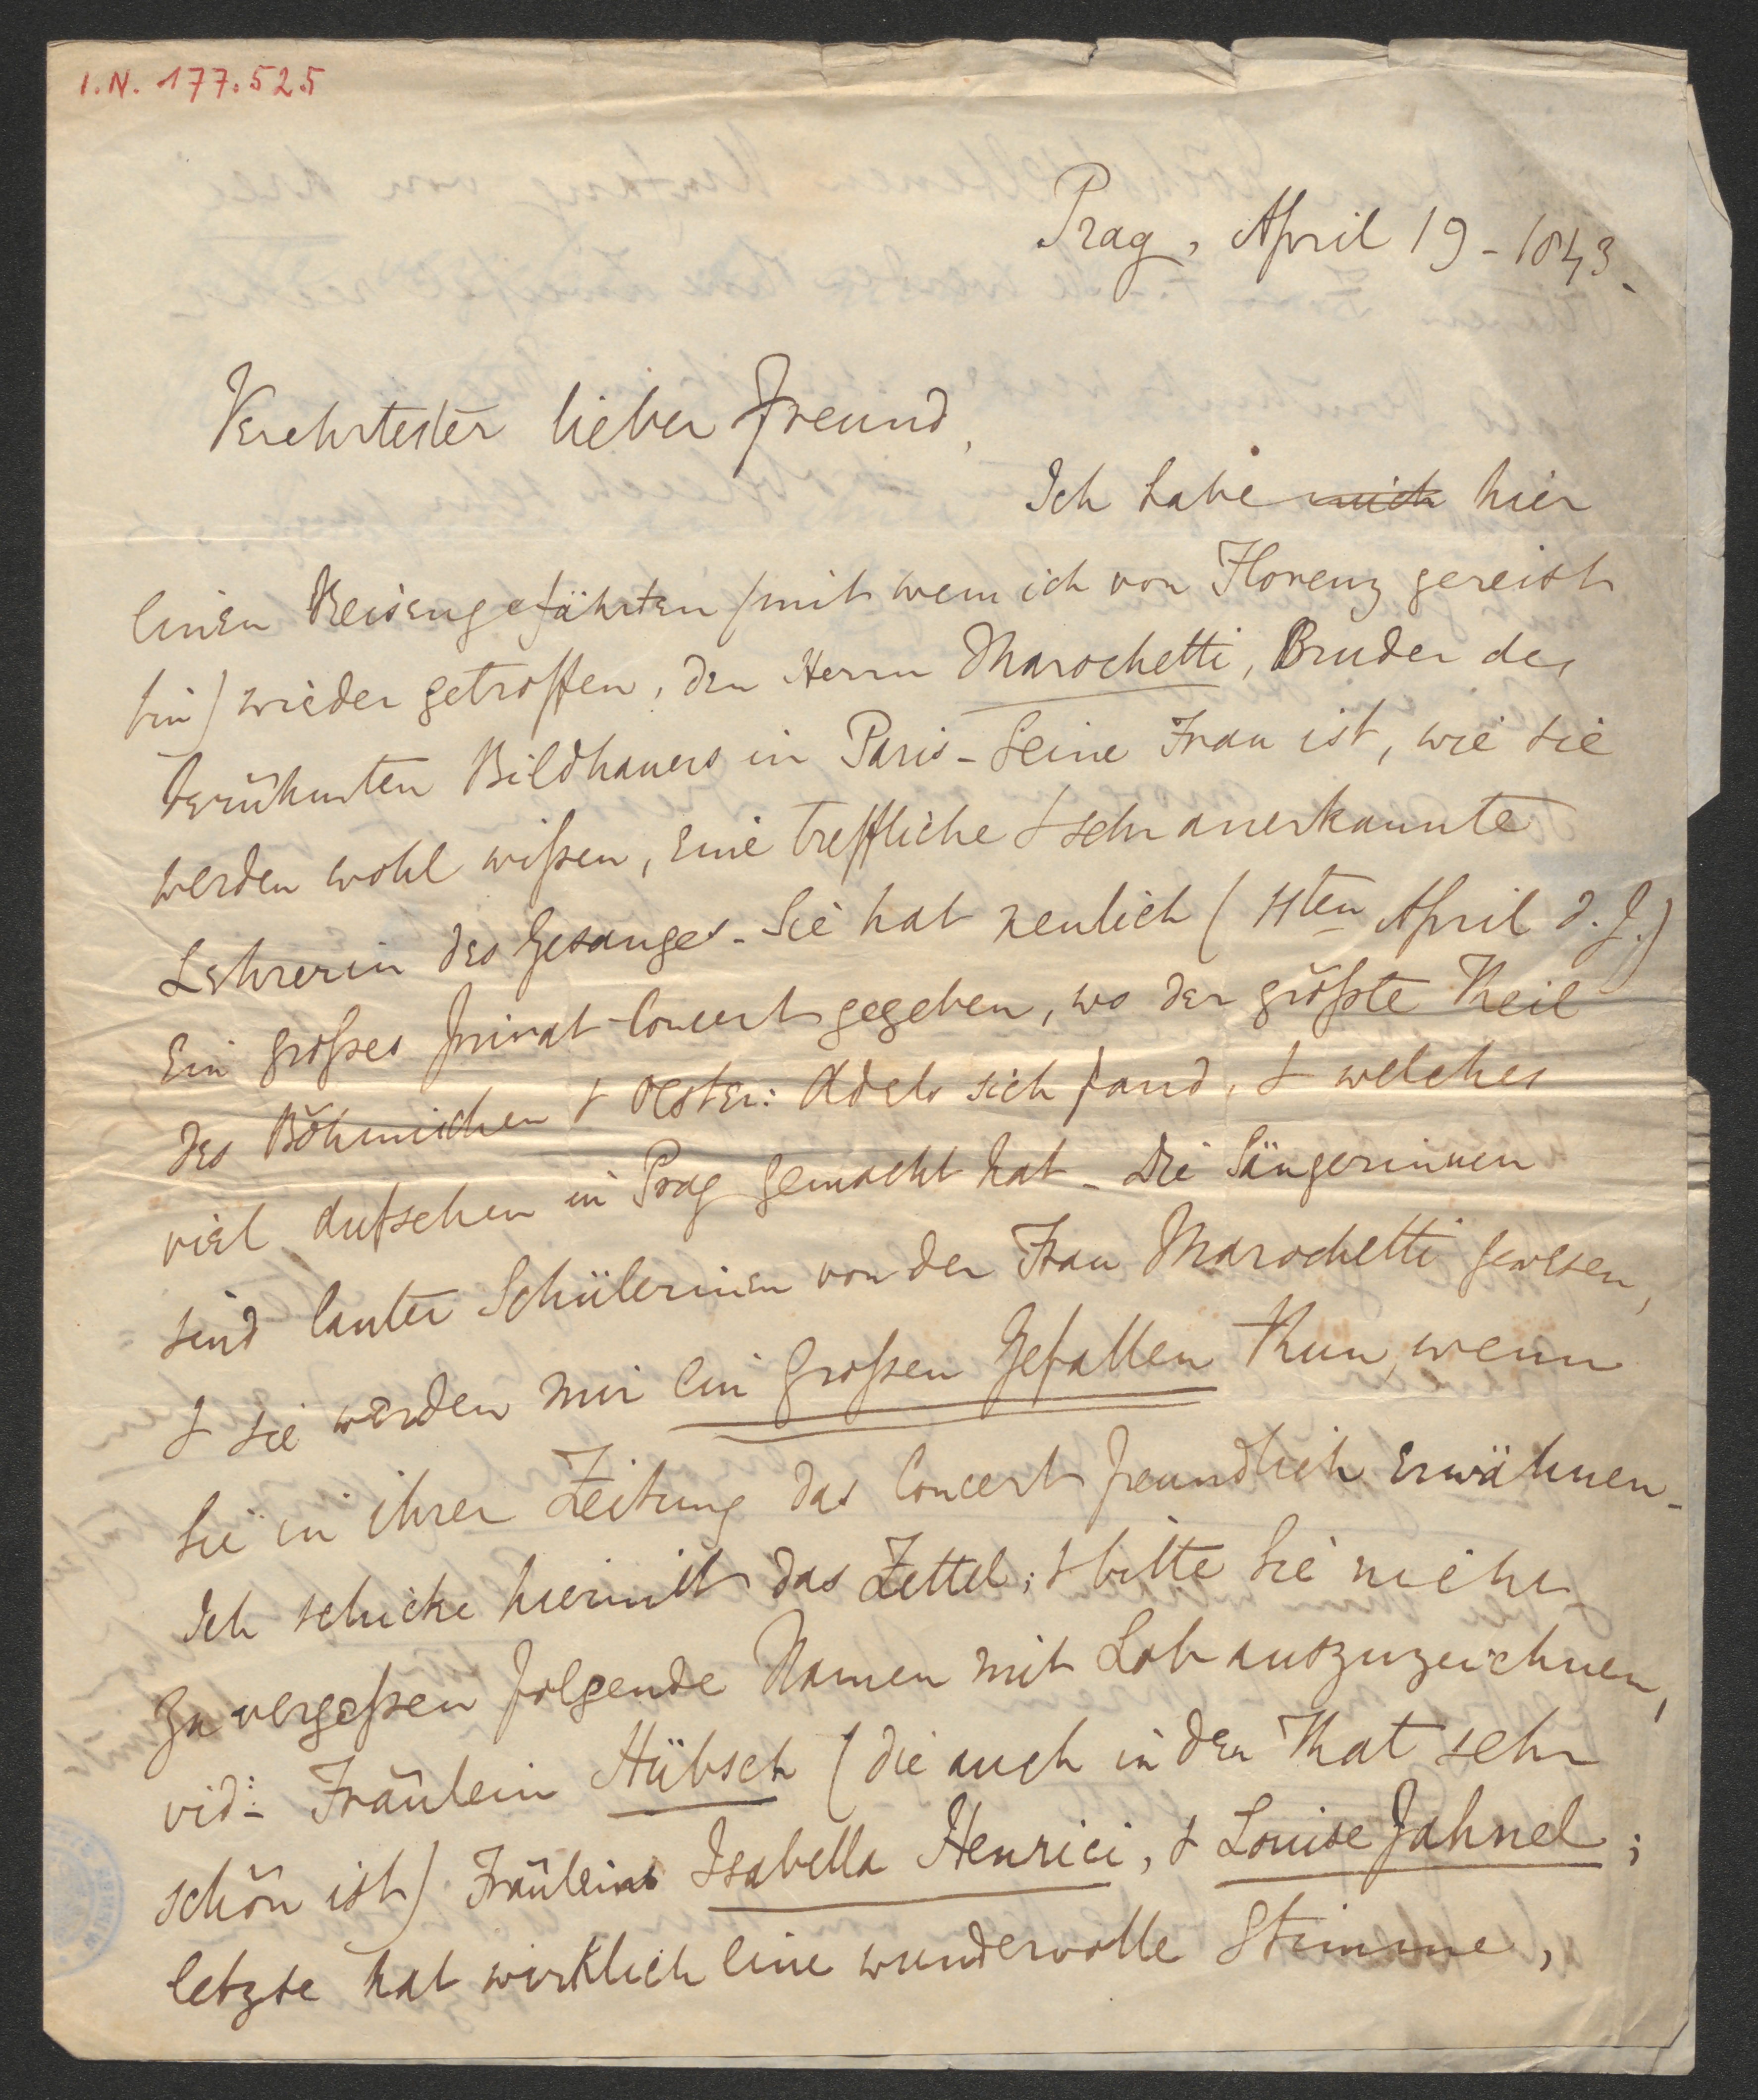 I.N. 177.525
Prag, April 19 - 1843.
Verehrtester lieber Freund,
Ich habe mich hier
einen Reisengefährten (mit wem ich von Florenz gereist
bin) wieder getroffen, den Herrn Marochetti, Bruder des
berühmten Bildhauers in Paris - Seine Frau ist, wie sie
werden wohl wißen, eine treffliche & sehr anerkannte
Lehrerin des Gesanges - Sie hat neulich (11ten April d. J.)
Ein großes privat-Concert gegeben, wo der größte Theil
des Böhmischen & Oester: Adels sich fand, & welches
viel Aufsehen in Prag gemacht hat - Die Sängerinnen
sind lauter Schülerinen von der Frau Marochetti gewesen,
& sie werden mir ein großen Gefallen thun, wenn
Sie in ihrer Zeitung das Concert freundlich erwähnen -
Ich schicke hiermit das Zettel; & bitte Sie nicht
zu vergeßen folgende Namen mit Lob auszuzeichnen,
vid: Fräulein Hübsch (die auch in der That sehr
schön ist) Fräuleins Isabella Henrici, & Louise Jahnel;
letzte hat wirklich eine wundervolle Stimme,